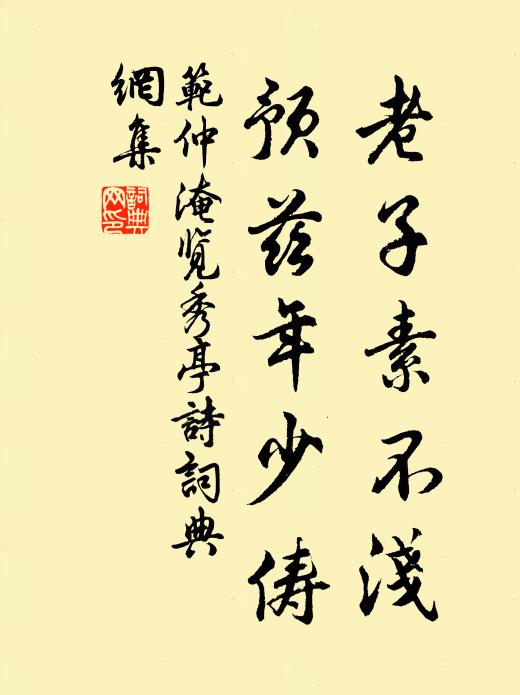 老子素不淺
預茲年少儔
範仲淹覽秀亭詩詞典
網集
詞典網印